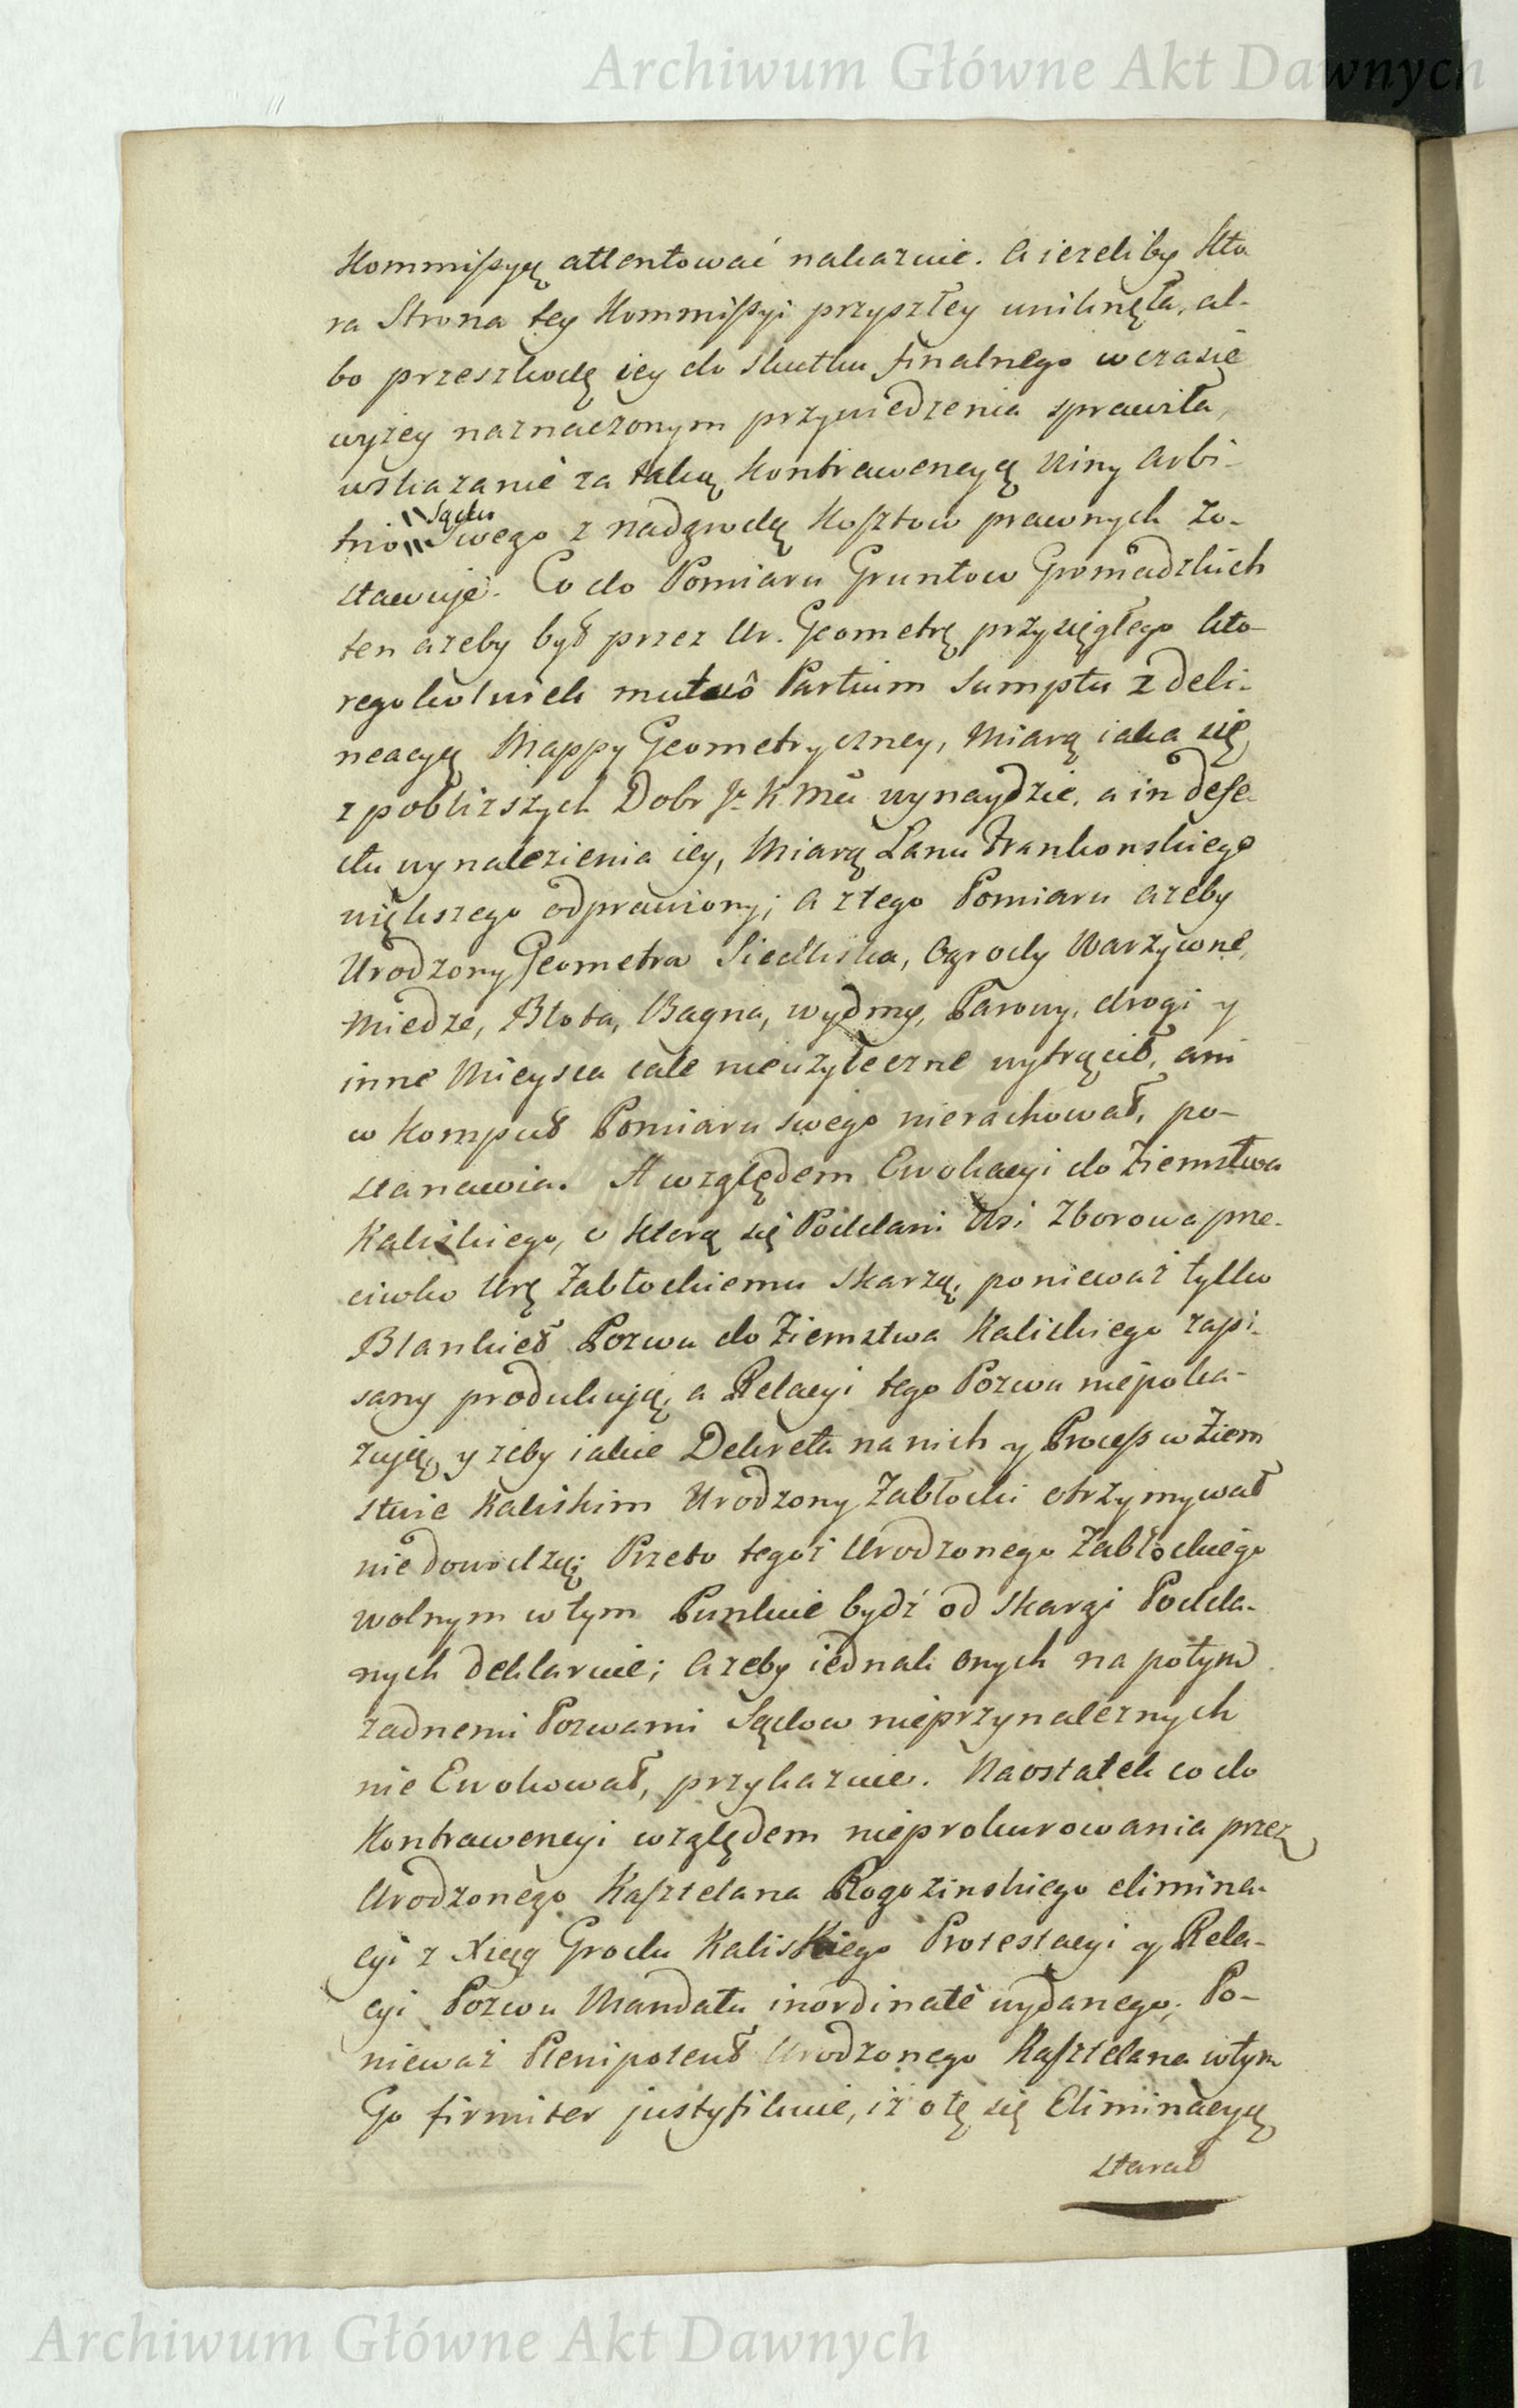 Archiwum Główne Akt Dawnych
Kommissyą attentować nakazuie. A ieżeliby Kto
ra Strona tey Kommissyi przyszłey uniknęła, al-
bo przeszkodę iey do skutku finalnego w czasie
wyżey naznaczonym przywiedzenia sprawiła,
wskazanie za taką Kontrawencyą Winy Arbi-
Sądu
trio swego z nadgrodą Kosztow prawnych zo-
stawuje. Co do Pomiaru Gruntow Gromadzkich
ten ażeby był przez Ur. Geometrę przysięgłego kto-
regokolwiek mutuô Partium Sumptu z deli-
neacyą Mappy Geometryczney, Miarą iaka się
z pobliższych Dobr Ja K Mci wynaydzie, a in defe-
ctu wynalezienia iey, Miarą Łanu Frankonskiego
większego odprawiony; A z tego Pomiaru ażeby
Urodzony Geometra Siedliska, Ogrody Warzywne,
Miedze, Błota, Bagna, wydmy, Parowy, drogi y
inne Mieysca cale nieużyteczne wytrącił, ani
w Komput Pomiaru swego nierachował, po-
stanawia. A względem Ewokacyi do Ziemstwa
Kaliskiego, o ktorą się Poddani Wsi Zborowa prze-
ciwko Urę Zabłockiemu skarżą, ponieważ tylko
Blankiet Pozwu do Ziemstwa Kaliskiego zapi-
sany produkuią, a Relacyi tego Pozwu niepoka-
zują, y żeby iakie Dekreta na nich y Process w Ziem
stwie Kaliskim Urodzony Zabłocki otrzymywał
nie dowodzą; Przeto tegoż Urodzonego Zabłockiego
wolnym w tym Punkcie bydź od skargi Podda-
nych deklaruie; Ażeby iednak onych na potym
żadnemi Pozwami Sądow nieprzynależnych
nie Ewokował, przykazuie. Naostatek co do
Kontrawencyi względem nieprokurowania przez
Urodzonego Kasztelana Rogozinskiego elimina-
cyi z Xiąg Grodu Kaliskiego Protestacyi y Rela-
cyi Pozwu Mandatu inordinatè wydanego; Po-
nieważ Plenipotent Urodzonego Kasztelana w tym
Go firmiter justyfikuie, iż o tę się Eliminacyą
starał
Archiwum Główne Akt Dawnych